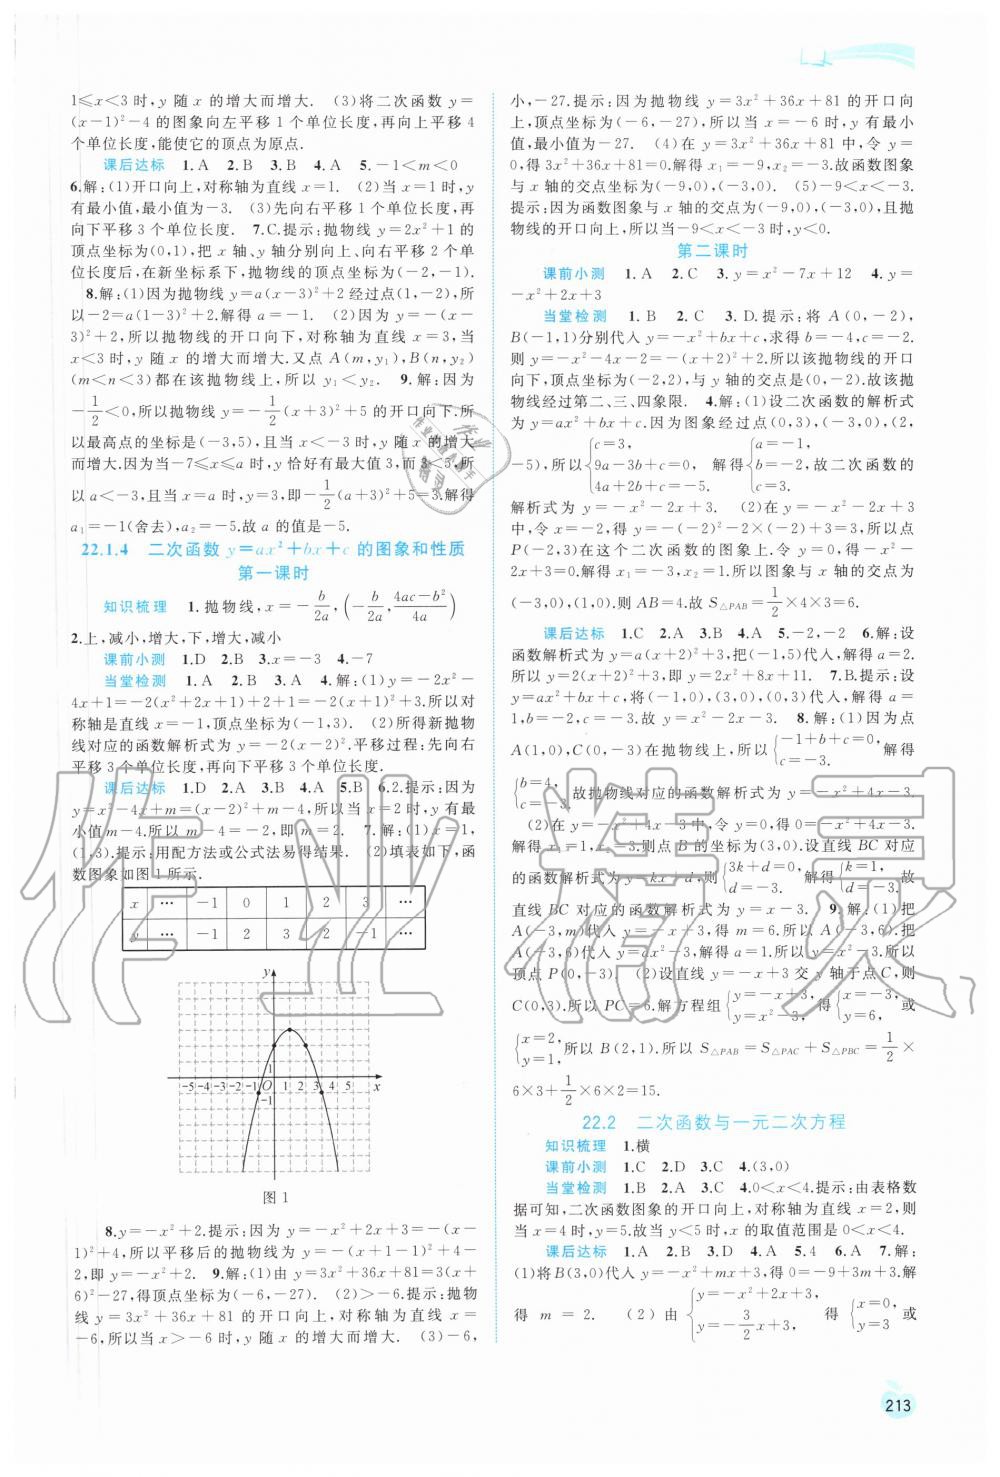 1≤x<3时,y随x的增大而增大. (3)将二次函数y=
(x-1)²-4的图象向左平移1个单位长度,再向上平移4
个单位长度,能使它的顶点为原点.
课后达标 1.A 2.B 3.B 4.A 5.-1<m<0
6.解:(1)开口向上,对称轴为直线x=1. (2)当x=1时,y
有最小值,最小值为-3. (3)先向右平移1个单位长度,再
向下平移3个单位长度. 7.C.提示:抛物线y=2x²+1的
顶点坐标为(0,1),把x轴、y轴分别向上、向右平移2个
单位长度,在新坐标系下,抛物线的顶点坐标为(-2,-1).
8.解:(1)因为抛物线y=a(x-3)²+2经过点(1,-2),所
以-2=a(1-3)²+2.解得a=-1. (2)因为y=-(x-
3)²+2,所以抛物线的开口向下,对称轴为直线x=3,当
x<3时,y随x的增大而增大.又点A(m,y₁),B(n,y₂)
(m<n<3)都在该抛物线上,所以y₁<y₂. 9.解:因为
-1/2<0,所以抛物线y=-1/2(x+3)²+5的开口向下.所
以最高点的坐标是(-3,5),且当x<-3时,y随x的增大
而增大.因为当-7≤x≤a时,y恰好有最大值3,而3<5,
所以a<-3,且当x=a时,y=3,即-1/2(a+3)²+5=3.解得
a₁=-1(舍去),a₂=-5.故a的值是-5.
22.1.4 二次函数y=ax²+bx+c的图象和性质
第一课时
知识梳理 1.抛物线,x=-b/2a,(-b/2a,(4ac-b²)/4a)
2.上,减小,增大,下,增大,减小
课前小测 1.D 2.B 3.x=-3 4.-7
当堂检测 1.A 2.A 3.A 4.解:(1)y=-2x²-
4x+1=-2(x²+2x+1-1)+1=-2(x+1)²+3.所以对
称轴是直线x=-1,顶点坐标为(-1,3). (2)所得新抛物
线对应的函数解析式为y=-2(x-2)².平移过程:先向右平
移3个单位长度,再向下平移3个单位长度.
课后达标 1.D 2.B 3.A 4.A 5.B 6.2.提示:因为
y=x²-4x+m=(x-2)²+m-4,所以当x=2时,y有最
小值m-4.所以m-4=-2,即m=2. 7.解:(1)x=1,
(1,3).提示:用配方法或公式法易得结果. (2)填表如下,函
数图象如图1所示.
x … -1 0 1 2 3 …
y … -1 2 3 2 -1 …
y
1
-5-4-3-2-1 O 1 2 3 4 5 x
-1
图1
8.y=-x²+2.提示:因为y=-x²+2x+3=-(x-
1)²+4,所以平移后的抛物线为y=-(x+1-1)²+4-
2,即y=-x²+2. 9.解:(1)由y=3x²+36x+81=3(x+
6)²-27,得顶点坐标为(-6,-27). (2)>-6.提示:抛物
线y=3x²+36x+81的开口向上,对称轴为直线x=
-6,所以当x>-6时,y随x的增大而增大. (3)-6,
小,-27.提示:因为抛物线y=3x²+36x+81的开口向
上,顶点坐标为(-6,-27),所以当x=-6时,y有最小
值,最小值为-27. (4)在y=3x²+36x+81中,令y=
0,得3x²+36x+81=0.解得x₁=-9,x₂=-3.故函数图象
与x轴的交点坐标为(-9,0),(-3,0). (5)-9<x<-3.
提示:因为函数图象与x轴的交点为(-9,0),(-3,0),且抛
物线的开口向上,所以当-9<x<-3时,y<0.
第二课时
课前小测 1.A 2.C 3.y=x²-7x+12 4.y=
-x²+2x+3
当堂检测 1.B 2.C 3.D.提示:将A(0,-2),
B(-1,1)分别代入y=-x²+bx+c,求得b=-4,c=-2.
则y=-x²-4x-2=-(x+2)²+2.所以该抛物线的开口
向下,顶点为(-2,2),与y轴的交点是(0,-2).故该抛
物线经过第二、三、四象限. 4.解:(1)设二次函数的解析式
为y=ax²+bx+c.因为图象经过点(0,3),(-3,0),(2,
-5),所以{c=3, 9a-3b+c=0, 4a+2b+c=-5. 解得{a=-1, b=-2, c=3. 故二次函数的
解析式为y=-x²-2x+3. (2)在y=-x²-2x+3
中,令x=-2,得y=-(-2)²-2×(-2)+3=3,所以点
P(-2,3)在这个二次函数的图象上.令y=0,则-x²-
2x+3=0.解得x₁=-3,x₂=1.所以图象与x轴的交点为
(-3,0),(1,0).则AB=4.故S△PAB=1/2×4×3=6.
课后达标 1.C 2.A 3.B 4.A 5.-2,-2 6.解:设
函数解析式为y=a(x+2)²+3,把(-1,5)代入,解得a=2.
所以y=2(x+2)²+3,即y=2x²+8x+11. 7.B.提示:设
y=ax²+bx+c,将(-1,0),(3,0),(0,3)代入,解得a=
1,b=-2,c=-3.故y=x²-2x-3. 8.解:(1)因为点
A(1,0),C(0,-3)在抛物线上,所以{-1+b+c=0, c=-3. 解得
{b=4, c=-3. 故抛物线对应的函数解析式为y=-x²+4x-3.
(2)在y=-x²+4x-3中,令y=0,得0=-x²+4x-3.
解得x₁=1,x₂=3.则点B的坐标为(3,0).设直线BC对应
的函数解析式为y=kx+d,则{3k+d=0, d=-3. 解得{k=1, d=-3. 故
直线BC对应的函数解析式为y=x-3. 9.解:(1)把
A(-3,m)代入y=-x+3,得m=6.所以A(-3,6).把
A(-3,6)代入y=ax²-3,解得a=1.所以y=x²-3.所以
顶点P(0,-3). (2)设直线y=-x+3交y轴于点C,则
C(0,3).所以PC=6.解方程组{y=-x+3, y=x²-3, 得{x=-3, y=6, 或
{x=2, y=1, 所以B(2,1).所以S△PAB=S△PAC+S△PBC=1/2×
6×3+1/2×6×2=15.
22.2 二次函数与一元二次方程
知识梳理 1.横
课前小测 1.C 2.D 3.C 4.(3,0)
当堂检测 1.B 2.A 3.C 4.0<x<4.提示:由表格数
据可知,二次函数图象的开口向上,对称轴为直线x=2,所以
当x=4时,y=5.故当y<5时,x的取值范围是0<x<4.
课后达标 1.A 2.B 3.D 4.A 5.4 6.A 7.解:
(1)将B(3,0)代入y=-x²+mx+3,得0=-9+3m+3.解
得m=2. (2)由{y=-x²+2x+3, y=-3/2x+3, 得{x=0, y=3 或
213
作业精灵